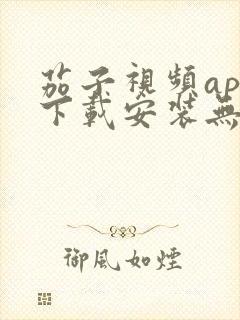 茄子視頻ap
下載安装無
御風如煙